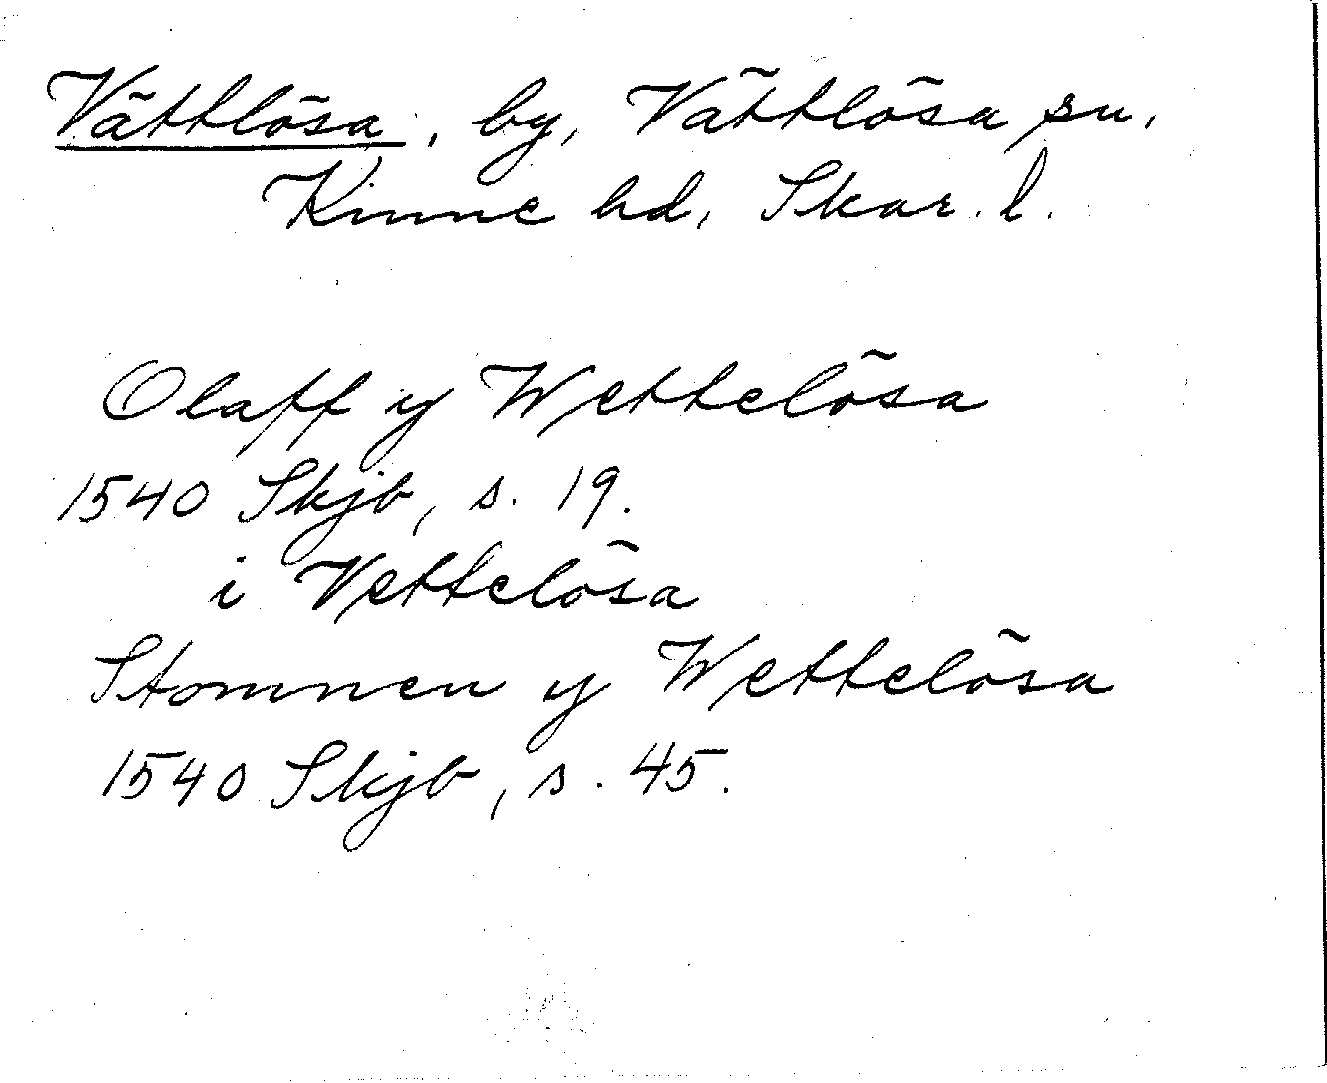 Vättlösa, by, Vättlösa sn,
Kinne hd, Skar. l.
Olaff y Wettelösa
1540 Skjb, s. 19.
i Vettelösa
Stommen y Wettelösa
1540 Skjb, s. 45.